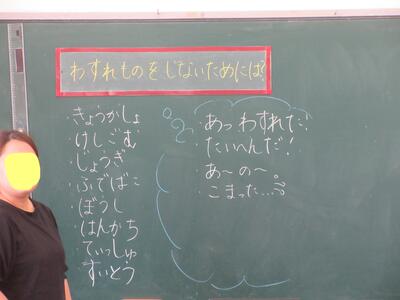 わすれものをしないためには?
・きょうかしょ
・けしごむ
・じょうぎ
・ふでばこ
・ぼうし
・はんかち
・てぃっしゅ
・すいとう
・あっわすれた!
・たいへんだ!
・あ〜の〜
・こまった…。